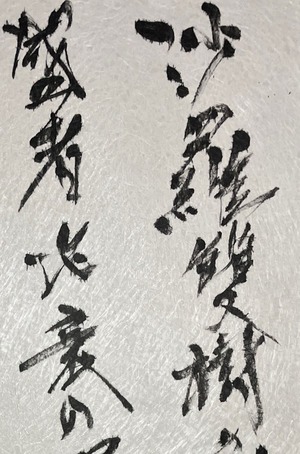 沙羅雙樹の
盛者必衰の